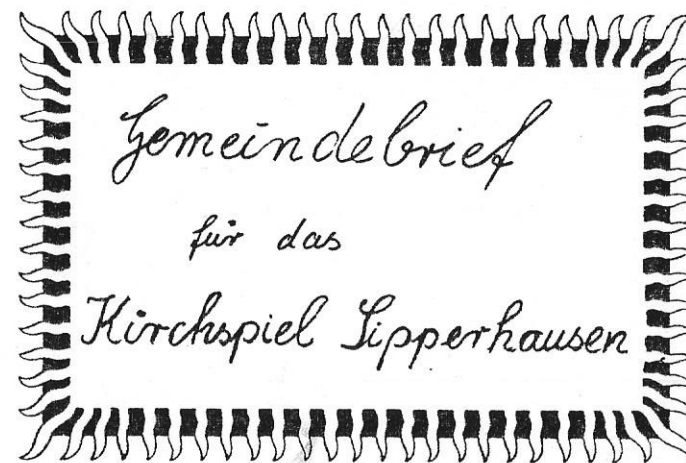 Gemeindebrief
für das
Kirchspiel Lipperhausen